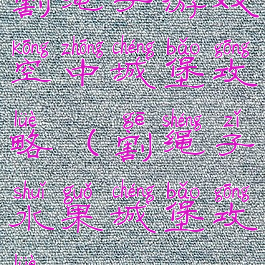 割绳子游戏
kōng zhōng chéng bǎo gōng
空中城堡攻
lüè gē shéng zǐ
略（割绳子
shuǐ guǒ chéng bǎo gōng
水果城堡攻